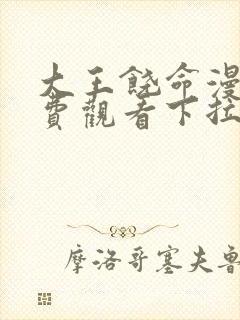 大王饒命漫
費觀看下拉
摩洛哥塞夫魯